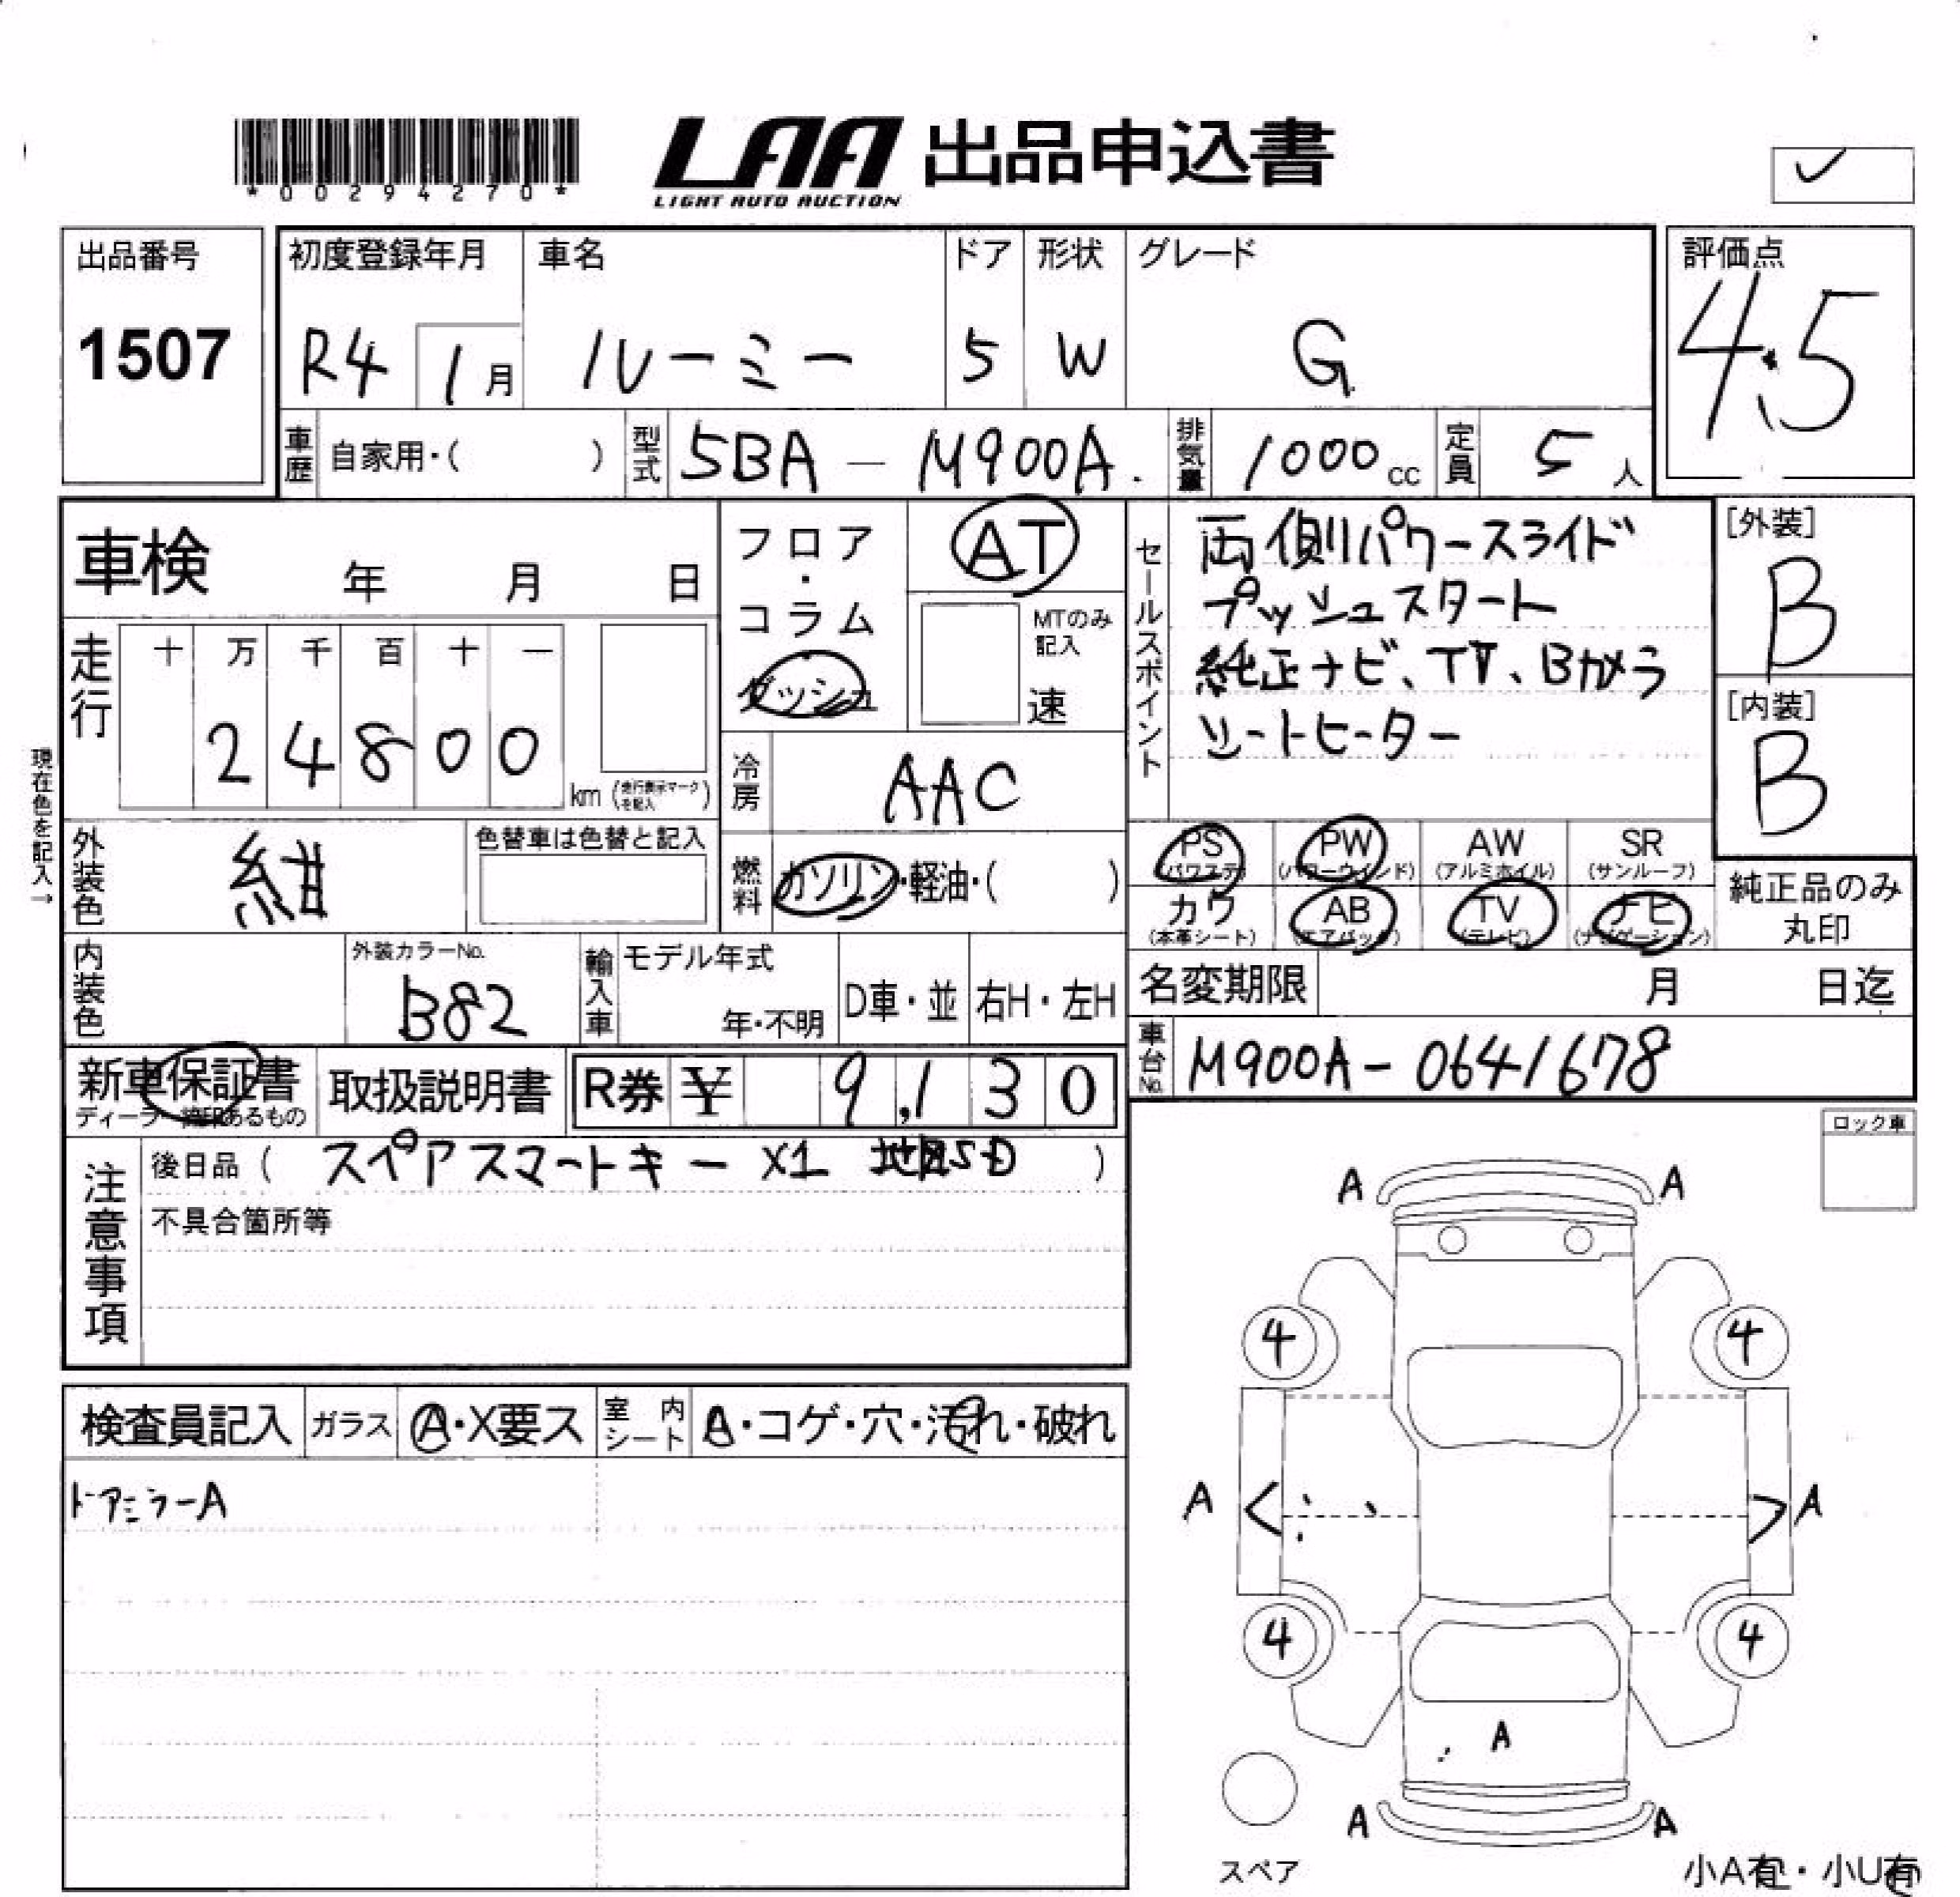 *00294270*
LAA 出品申込書
LIGHT AUTO AUCTION
出品番号
1507
初度登録年月
R4 1月
車名
ルーミー
ドア
5
形状
W
グレード
G
評価点
4.5
車歴 自家用・( )
型式 5BA - M900A
排気量 1000cc
定員 5人
車検 年 月 日
走行
十 万 千 百 十 一
2 4 8 0 0
km (走行表示マークを記入)
現在色を記入→
フロア・コラム
ダッシュ
AT
MTのみ記入
速
冷房 AAC
外装色 紺
色替車は色替と記入
燃料 ガソリン・軽油・( )
セールスポイント
両側パワースライド
プッシュスタート
純正ナビ、TV、Bカメラ
シートヒーター
[外装]
B
[内装]
B
PS (パワステ)
PW (パワーウインド)
AW (アルミホイル)
SR (サンルーフ)
カワ (本革シート)
AB (エアバック)
TV (テレビ)
ナビ (ナビゲーション)
純正品のみ丸印
内装色
外装カラーNo.
B82
輸入車
モデル年式
年・不明
D車・並
右H・左H
名変期限 月 日迄
車台No. M900A-0641678
新車保証書
取扱説明書
R券 ¥ 9,130
注意事項
後日品 ( スペアスマートキー ×1 地図SD )
不具合箇所等
ロック車
検査員記入
ガラス A・X要ス
室内シート A・コゲ・穴・汚れ・破れ
ドアミラーA
A A
4 4
A A
4 4
A
A A
スペア
小A有・小U有